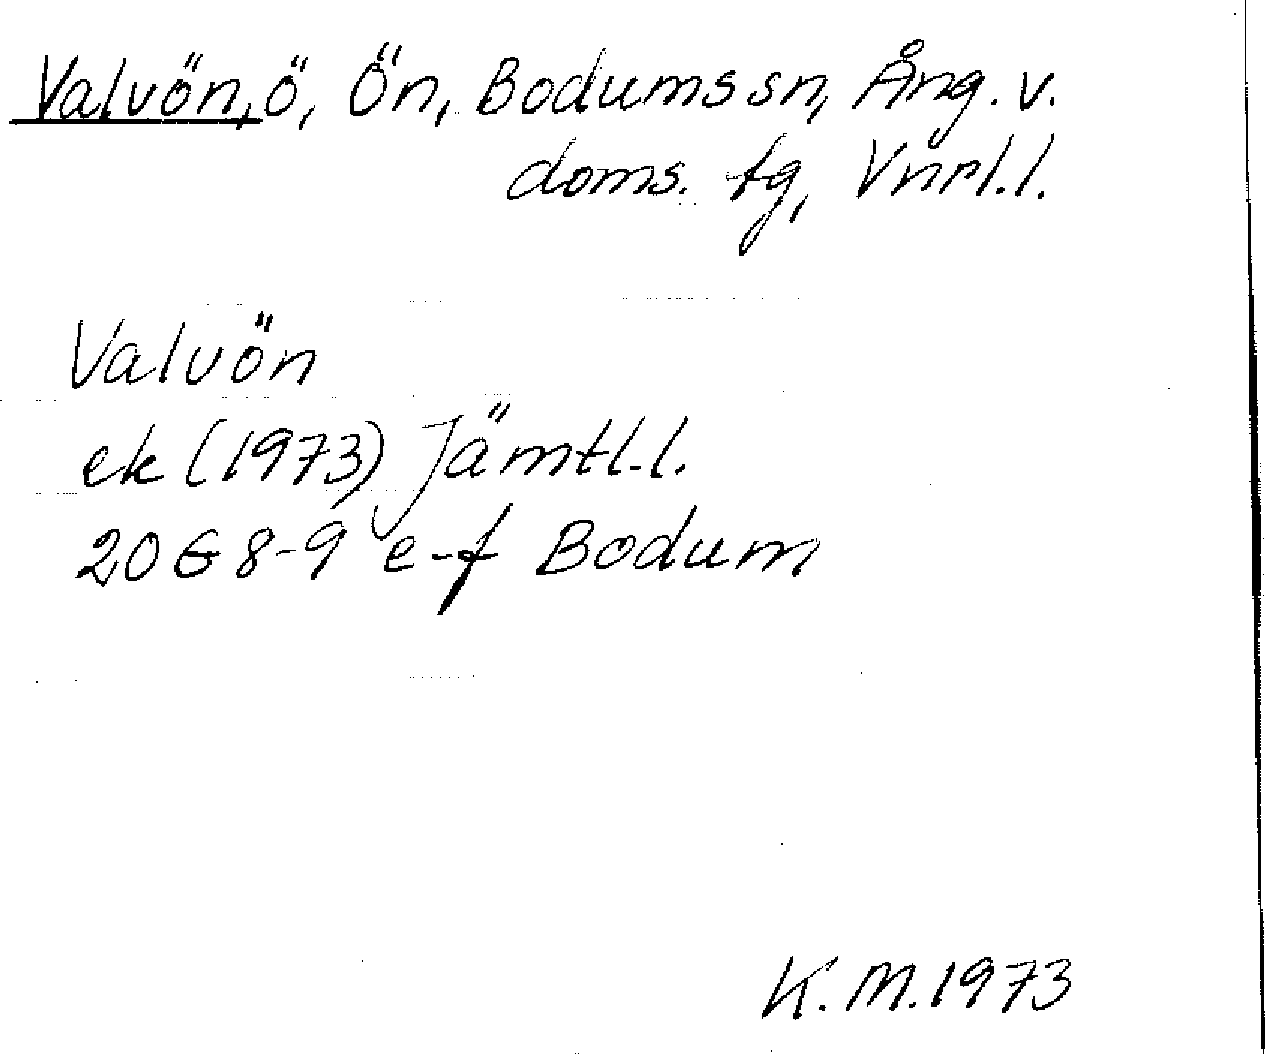 Valvön, ö, Ön, Bodums sn, Ång. v.
doms. tg, Vnrl. l.
Valvön
ek (1973) Jämtl. l.
20 G 8-9 e-f Bodum
K. M. 1973